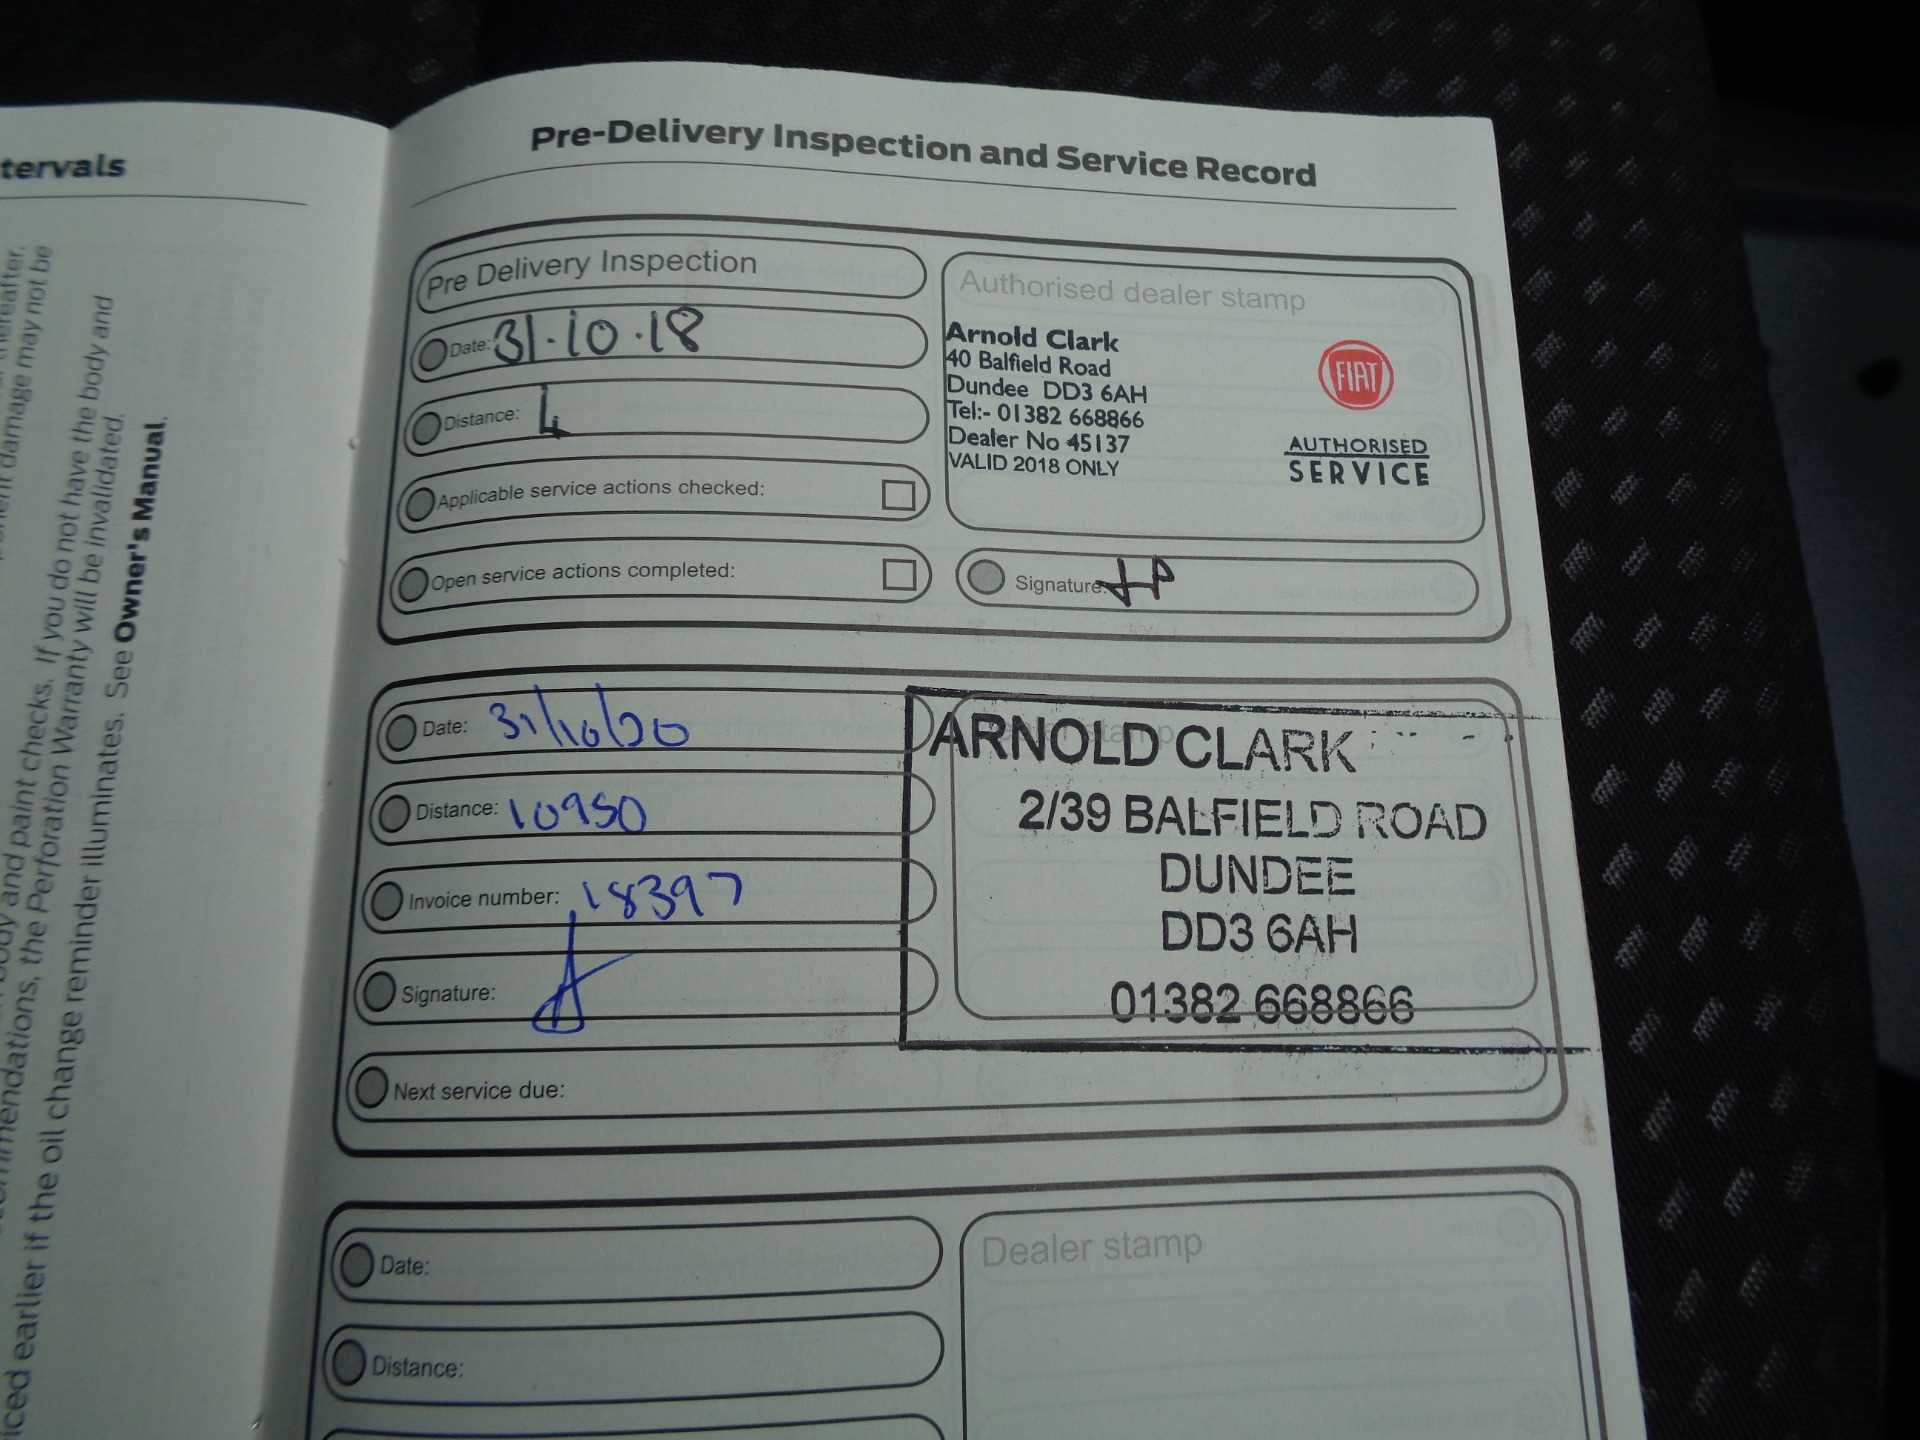 tervals
thereafter.
damage may not be
and paint checks. If you do not have the body and
the Perforation Warranty will be invalidated.
earlier if the oil change reminder illuminates. See Owner's Manual.
Pre-Delivery Inspection and Service Record
Pre Delivery Inspection
Date: 31·10·18
Distance: 4
Applicable service actions checked:
Open service actions completed:
Authorised dealer stamp
Arnold Clark
40 Balfield Road
Dundee DD3 6AH
Tel:- 01382 668866
Dealer No 45137
VALID 2018 ONLY
FIAT
AUTHORISED
SERVICE
Signature:
Date: 31/10/20
Distance: 10950
Invoice number: 18397
Signature:
Next service due:
Dealer stamp
ARNOLD CLARK
2/39 BALFIELD ROAD
DUNDEE
DD3 6AH
01382 668866
Date:
Distance:
Dealer stamp